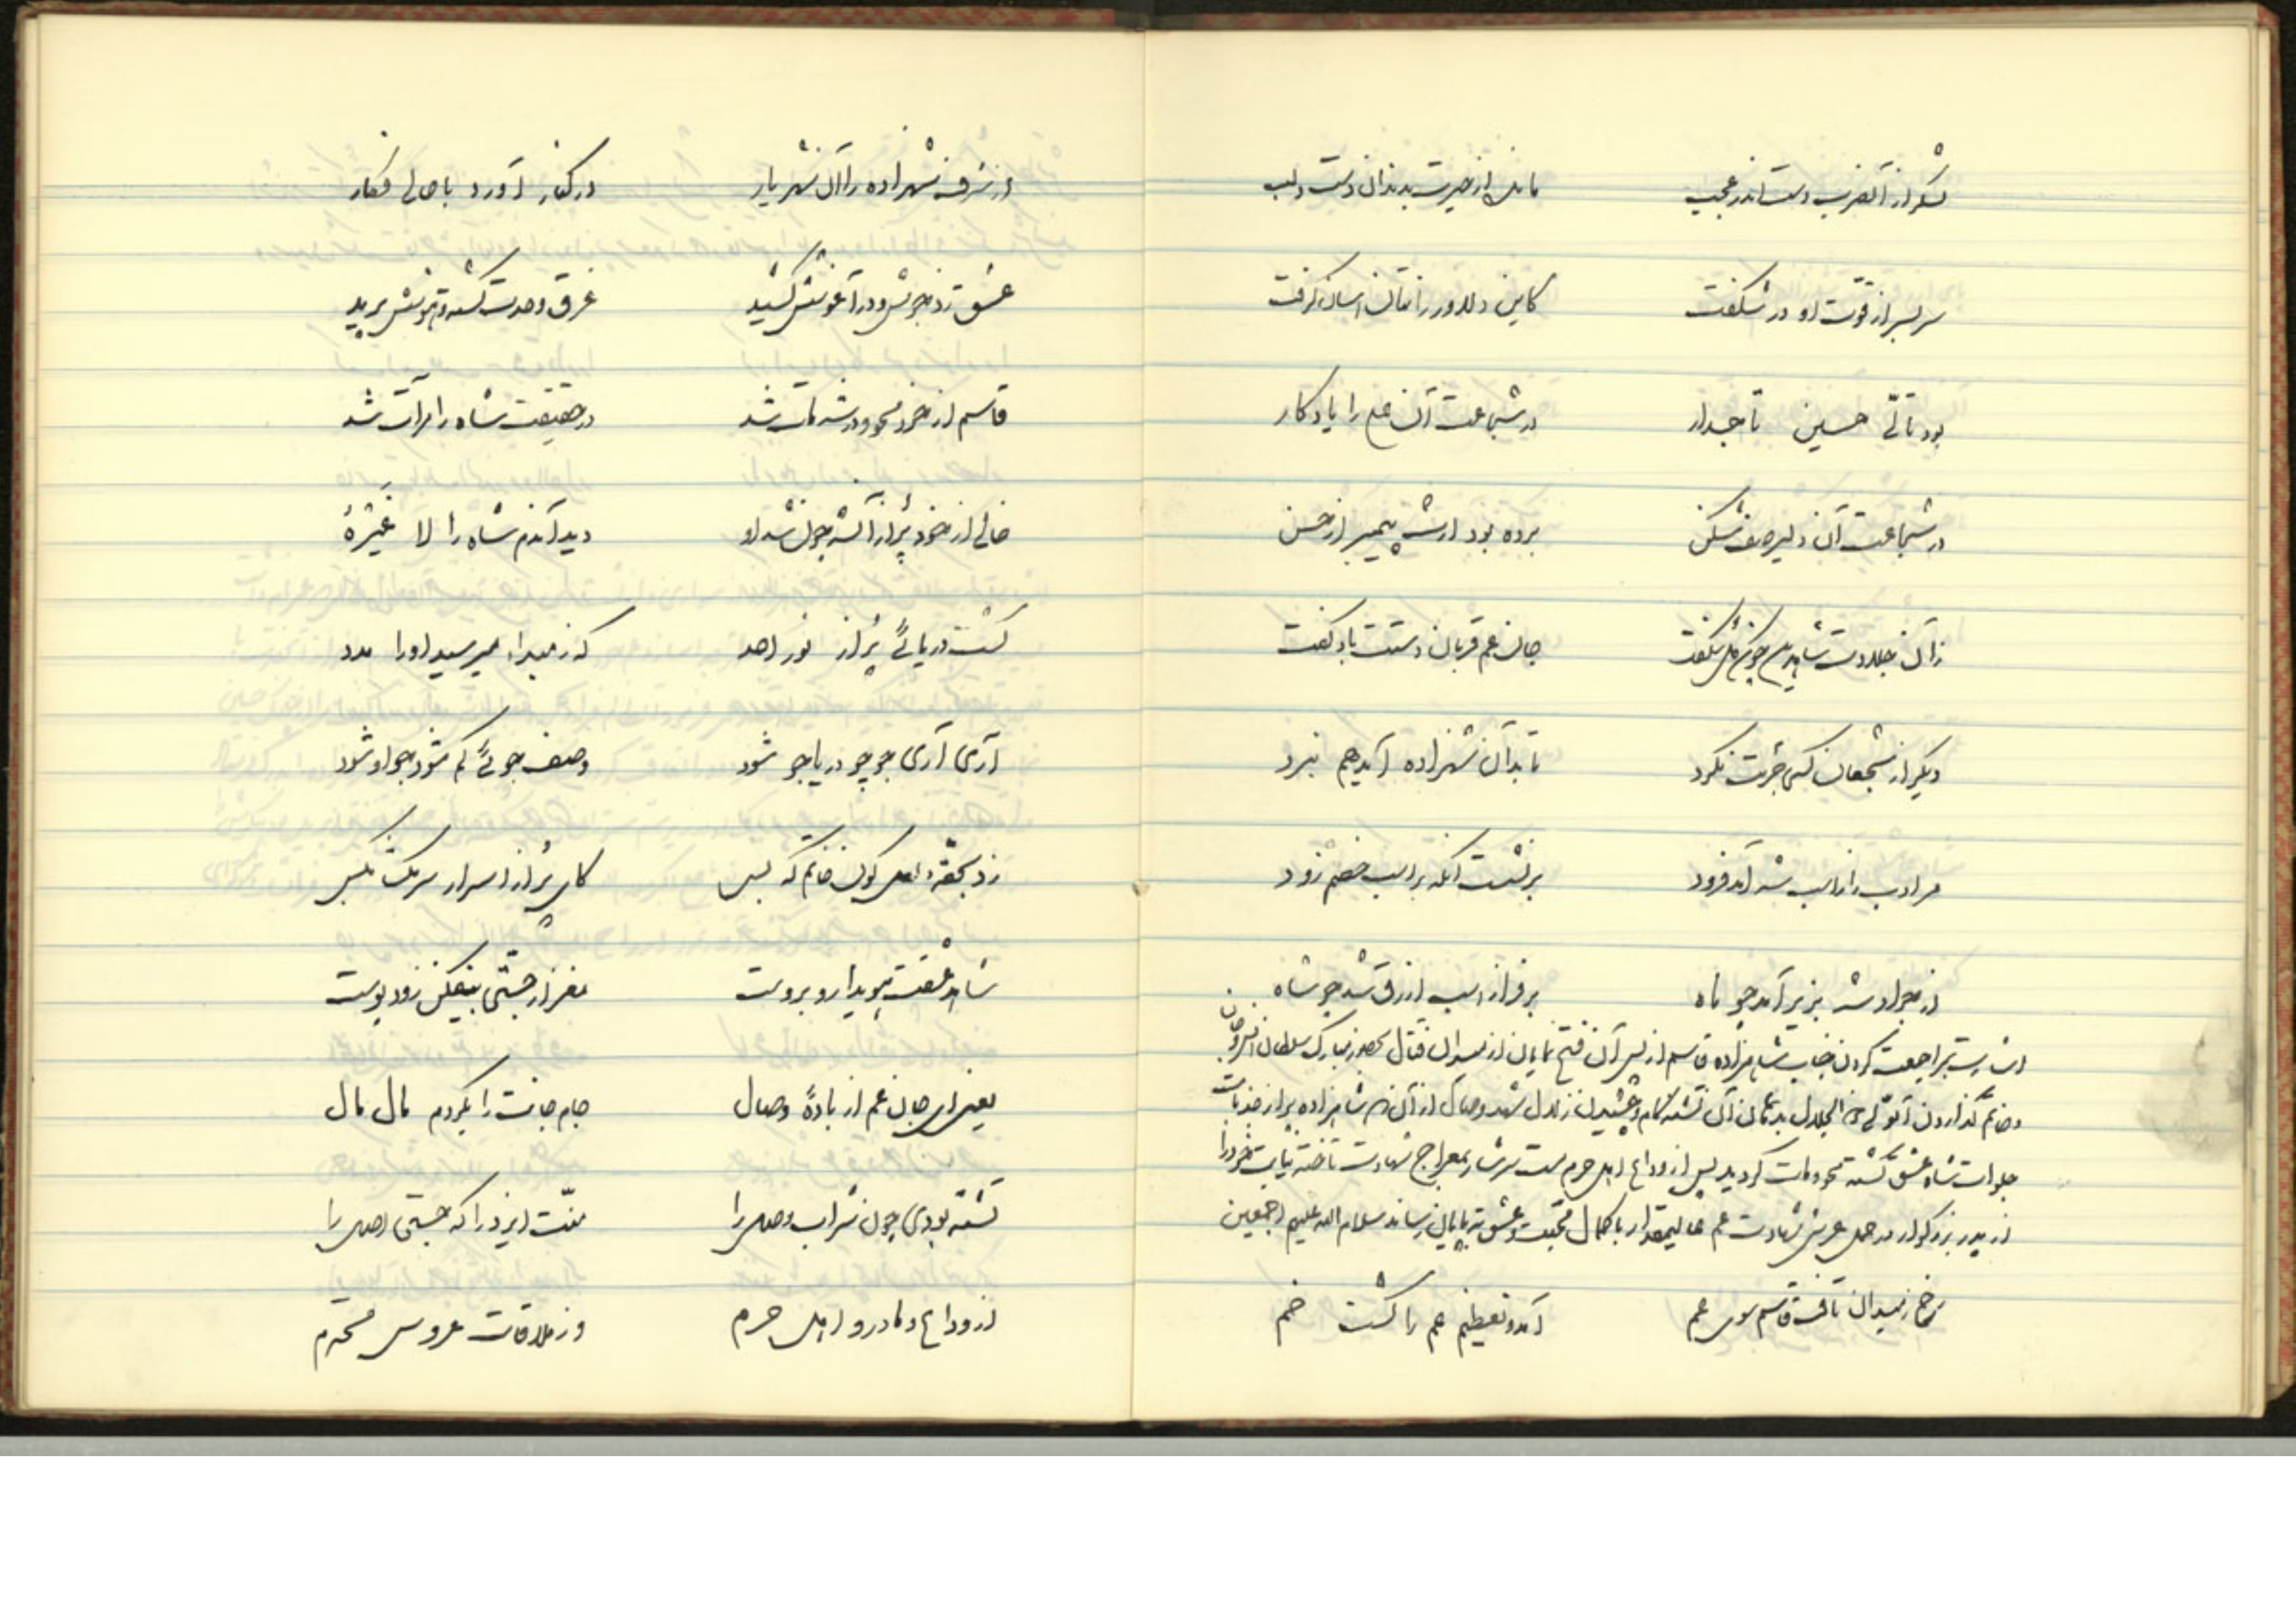 لشکر از آن ضرب دست اندر عجب ماند از حیرت بدندان دست و لب
سر بسر از قوّت او در شگفت کاین دلاور را چسان گرفت
بود تالی حسین تاجدار در شجاعت آن علی را یادگار
در شجاعت آن دلیر صف شکن برده بود ارث پیمبر از حسن
زآن جلادت شاه دین چون گل شکفت جان عم قربان دستت باد گفت
دیگر از شجعان کسی جرئت نکرد تا بدآن شهزاده آید هم نبرد
مر ادب را از اسب شه آمد فرود برنشست آنگه بر اسب خصم زود
از جواد شه بزیر آمد چو ماه بر فراز اسب ازرق شد چو شاه
اشارت بمراجعت کردن جناب شاهزاده قاسم از پس آن فتح نمایان از میدان قتال بحضور مبارک سلطان انس و جان
و خاتم گذاردن آن ولی ذی الجلال بدهان آن تشنه کام و چشیدن زلال شهد وصال از آن و شاهزاده پر از جذبات
جلوات شاه عشق گشته محو و مات گردید پس از وداع اهل حرم مست سرشار بمعراج شهادت تاخته نیابت خود را
از پدر بزرگوار در حمل عرش شهادت عم عالیمقدار با کمال محبّت و عشق بپایان رساند سلام الله علیهم اجمعین
رخ ز میدان تافت قاسم سوی عم آمد و تعظیم عم را گشت خم
از شرف شهزاده را آن شهریار در کنار آورد با حال فکار
عشق زد جوش و در آغوشش کشید غرق وحدت گشت و هوشش پرید
قاسم از خود محو و در شه مات شد در حقیقت شاه را مرآت شد
خالی از خود پُر از آن شه چون شد او دید آندم شاه را لا غَیرُهُ
گشت دریائی پُر از نور احد که ز مبدأ میرسید او را مدد
آری آری جو چو دریا جو شود وصف جوئی گم شود چو او شود
زد بحقهٔ لعل گون خاتم که بس کای پُر از اسرار سر مگو بکس
شاهد عشقت پدیدار و بروست مغز از جستی بیفکن زود پوست
یعنی ای جان عم از بادهٔ وصال جام جانت را بکردم مال مال
تشنه بودی چون شراب وصل را منّت ایزد را که جستی اصل را
از وداع مادر و اهل حرم وز ملاقات عروس محترم